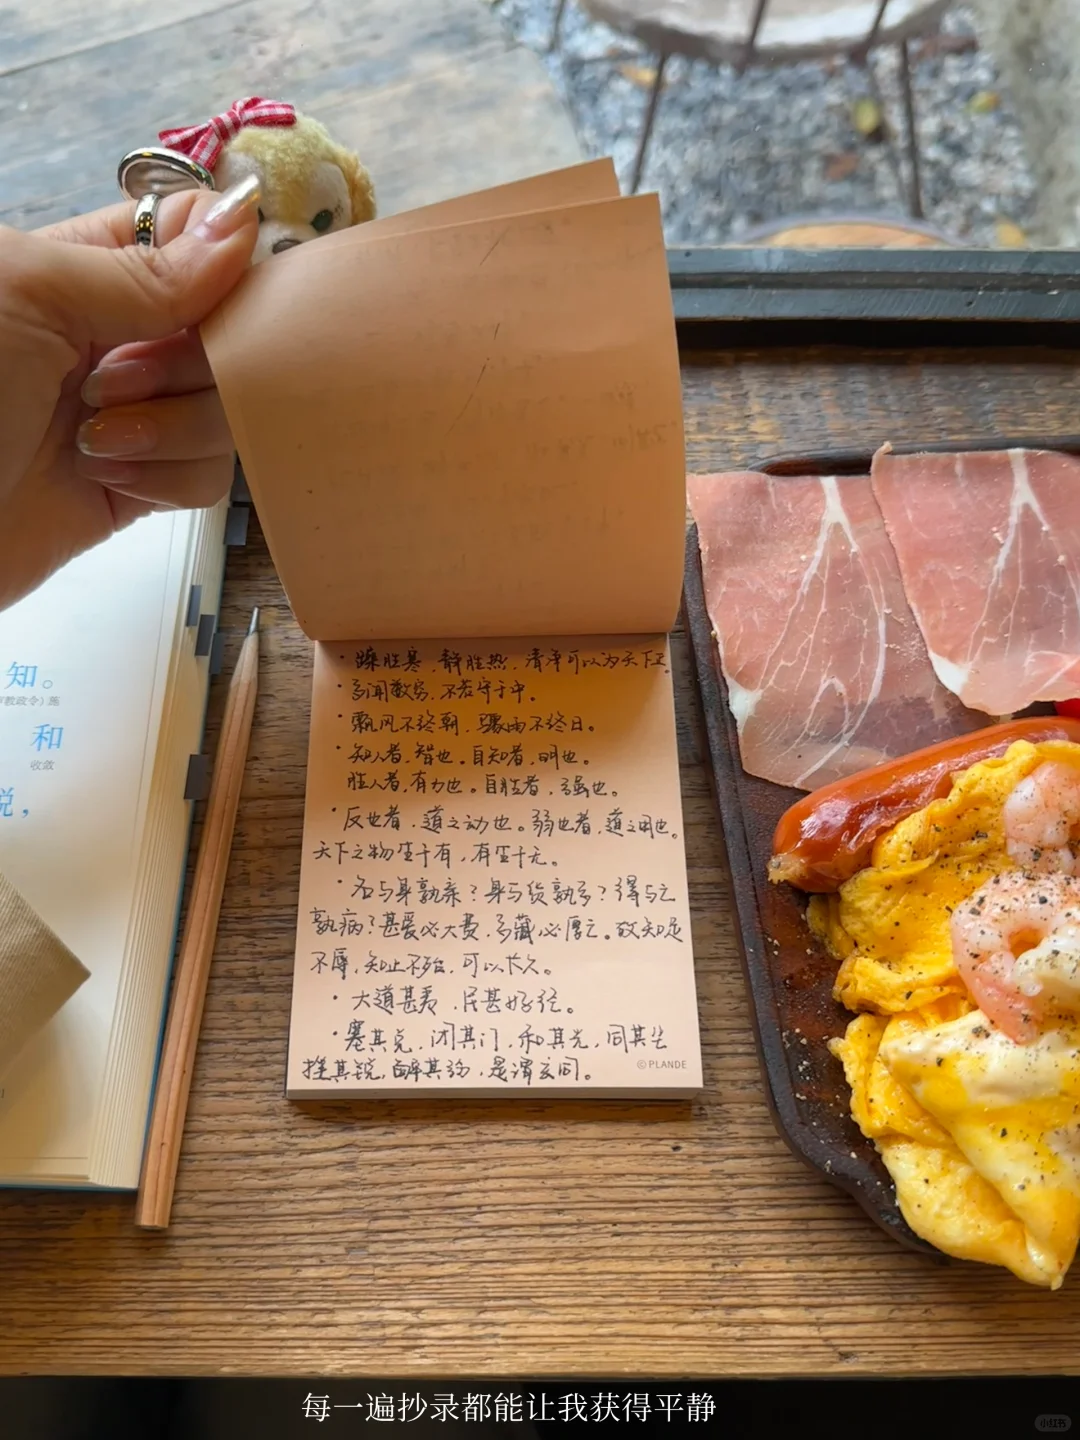 知。
和
收敛
说，
· 躁胜寒，静胜热，清净可以为天下正
· 多闻数穷，不若守于中。
· 飘风不终朝，骤雨不终日。
· 知人者，智也。自知者，明也。
胜人者，有力也。自胜者，强也。
· 反也者，道之动也。弱也者，道之用也。
天下之物生于有，有生于无。
· 名与身孰亲？身与货孰多？得与亡
孰病？甚爱必大费，多藏必厚亡。故知足
不辱，知止不殆，可以长久。
· 大道甚夷，民甚好径。
· 塞其兑，闭其门，和其光，同其尘
挫其锐，解其纷，是谓玄同。
©PLANDE
每一遍抄录都能让我获得平静
小红书